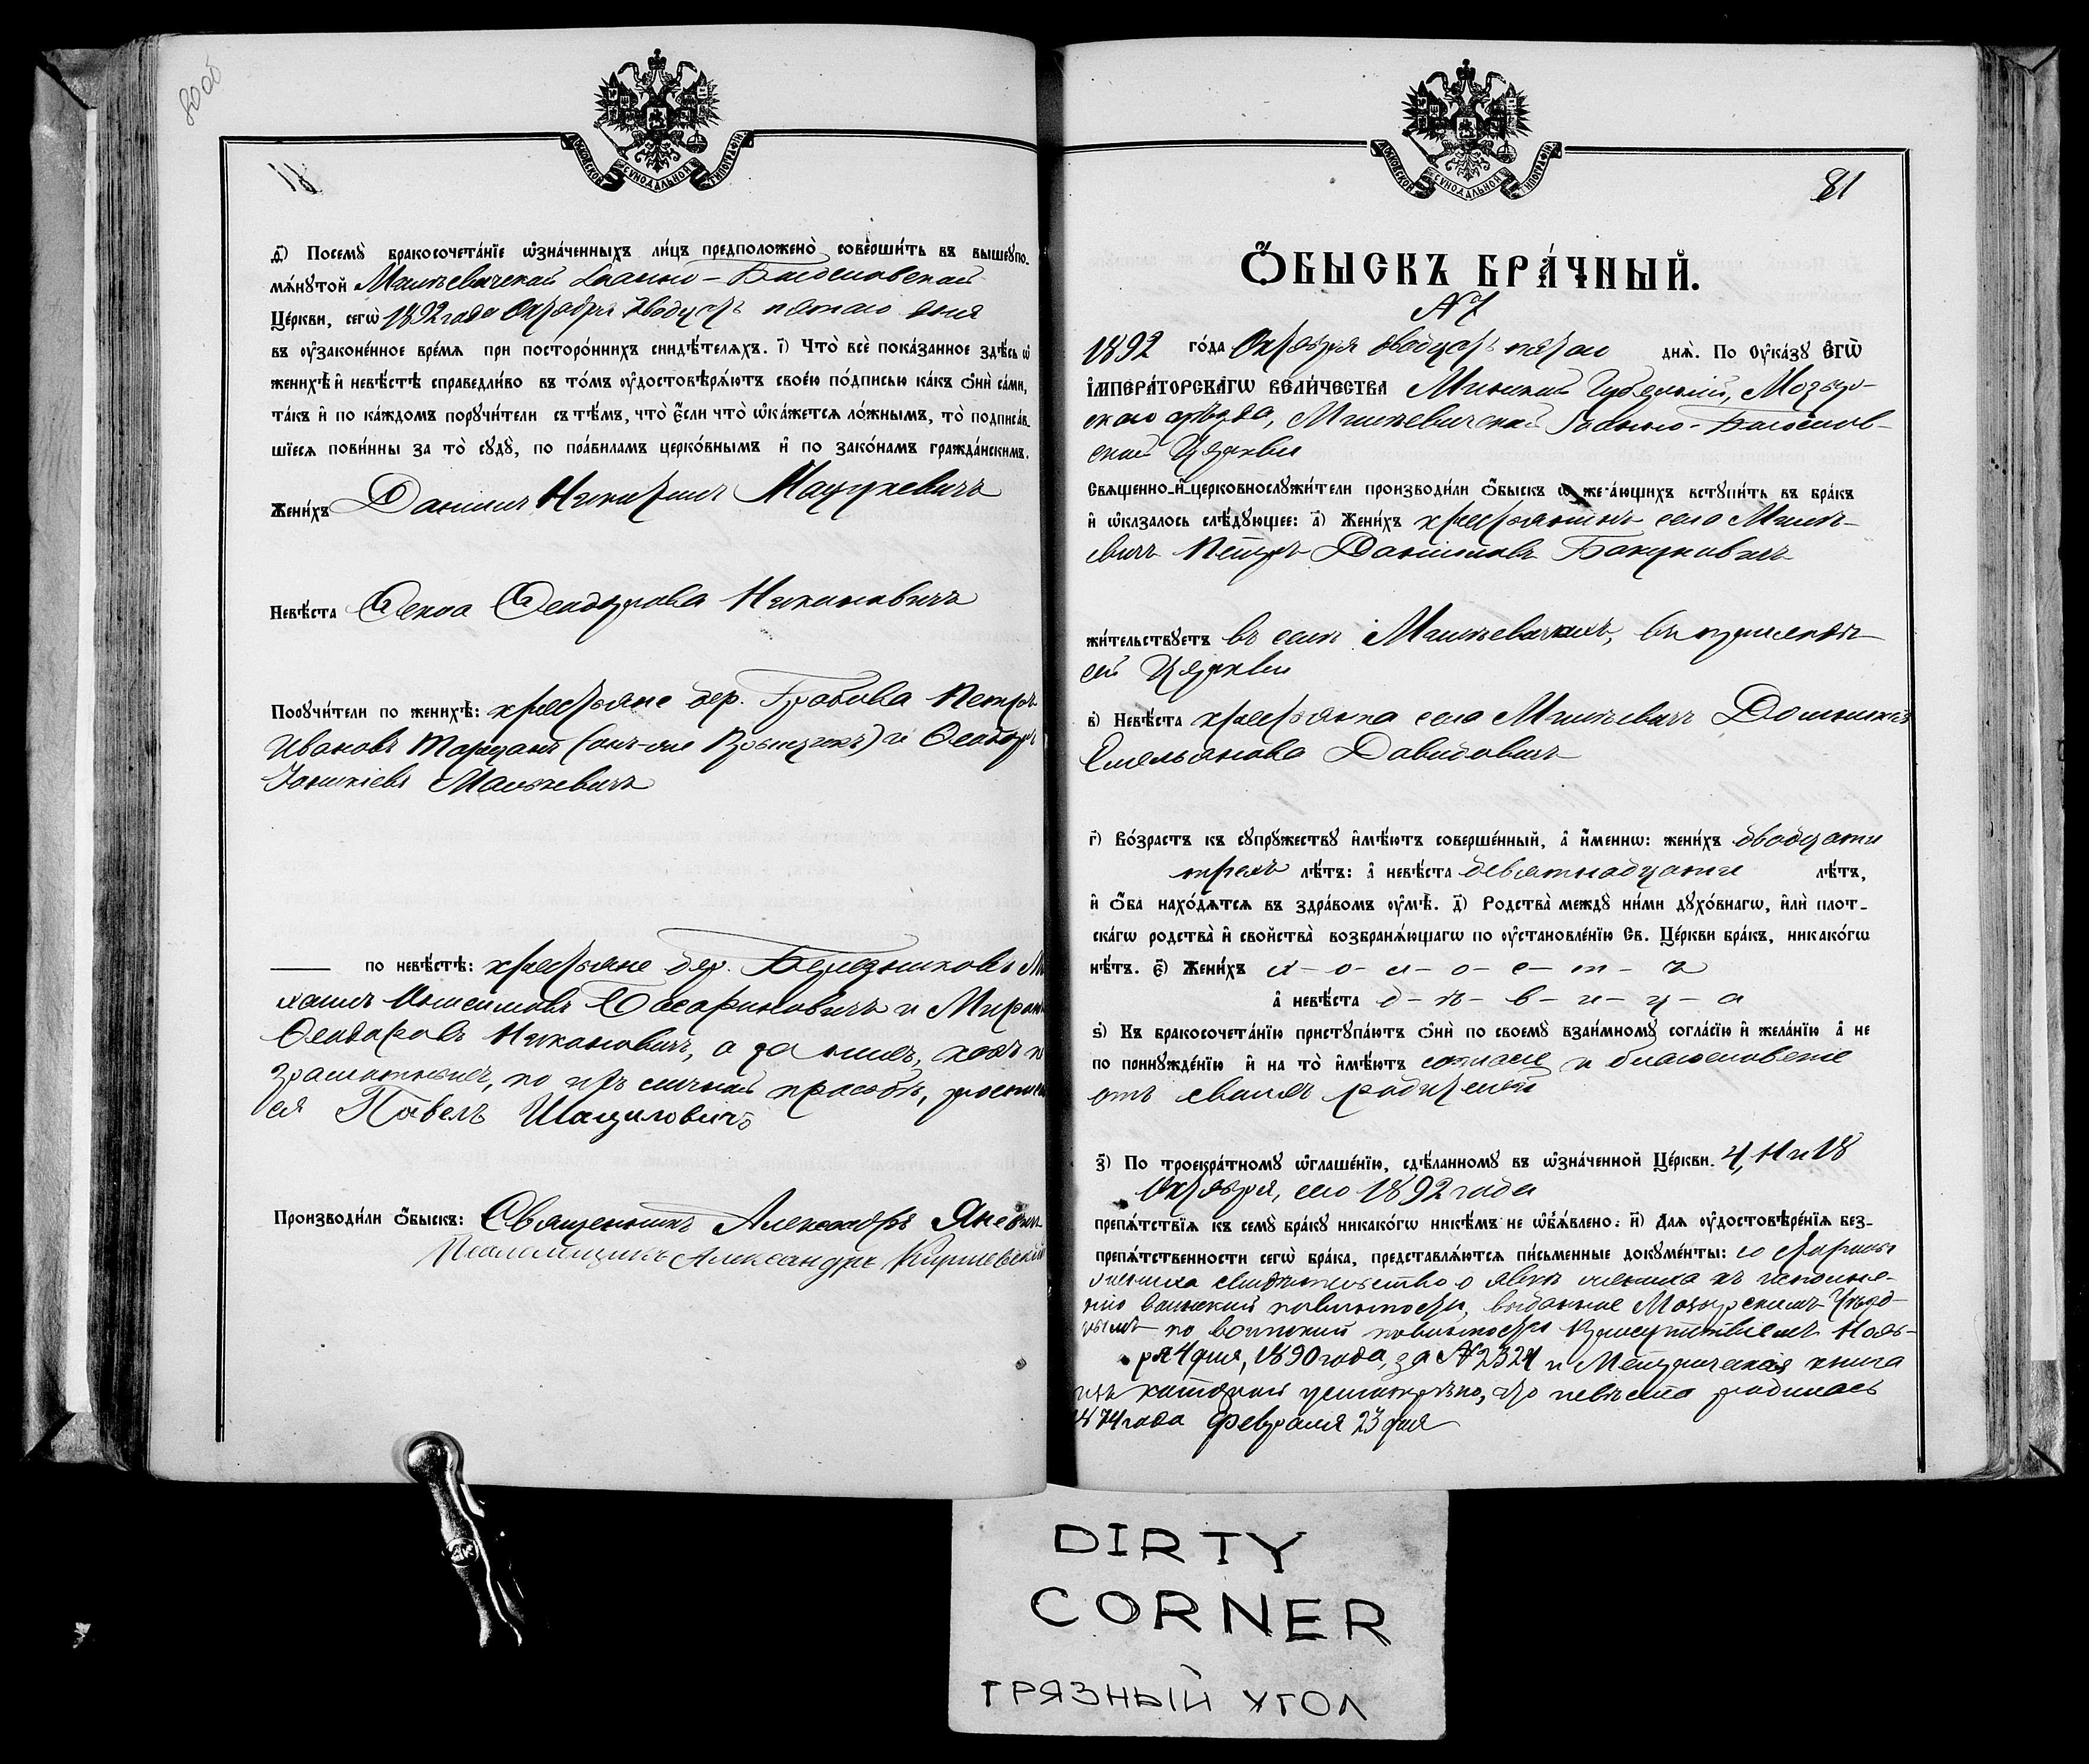 80об
МОСКОВСКОЙ СѴНОДАЛЬНОЙ ТИПОГРАФІИ
д҃) Посемꙋ̀ бракосочета́нїе ѡ҆зна́ченныхъ ли́цъ предположено̀ соверши́ть въ вышеꙋпо-
мѧ́нꙋтой Іоанно-Богословской
Це́ркви, сегѡ̀ 1892 года Октября двадцать пятаго дня
въ ᲂу҆зако́не́нное вре́мѧ при посторо́ннихъ свидѣ́телѧхъ. і҃) Что̀ всѐ пока́занное здѣ́сь ѡ҆
женихѣ̀ и҆ невѣ́стѣ справедли́во въ то́мъ ᲂу҆достовѣрѧ́ютъ свое́ю по́дписью ка́къ ѻ҆нѝ са́ми,
та́къ и҆ по ка́ждомъ порꙋчи́тели съ тѣ́мъ, что̀ є҆́сли что̀ ѡ҆ка́жетсѧ ло́жнымъ, то̀ подписа́в-
шїесѧ пови́нны за то̀ сꙋдꙋ̀, по пра́виламъ церко́внымъ и҆ по зако́намъ гражда́нскимъ.
Жени́хъ Даніилъ Никитинъ Мацукевичъ
Невѣ́ста Ѳекла Ѳеодорова Никоновичъ
Порꙋчи́тели по женихѣ̀: крестьяне дер. Грабова Петръ
Ивановъ (онъ-же ) и Ѳеодоръ
Малькевичъ
по невѣ́стѣ: крестьяне дер. Березняковъ Ми-
хаилъ и Миронъ
Ѳеодоровъ Никоновичъ, а за нихъ, какъ не
грамотныхъ, по ихъ личной просьбѣ, росписал-
ся Павелъ Шацилович
Производи́ли ѻ҆́быскъ: Священникъ Александръ
Псаломщикъ Александръ
МОСКОВСКОЙ СѴНОДАЛЬНОЙ ТИПОГРАФІИ
81
Ѻ҆́БЫСКЪ БРА́ЧНЫЙ.
№ 7
1892 го́да Октября двадцать пятаго днѧ̀. По ᲂу҆ка́зꙋ Є҆гѡ̀
І҆мпера́торскагѡ вели́чества Минской Губерніи, Мозыр-
скаго уѣзда, Іоанно-Богослов-
ской Церкви
Свѧщенно-и҆-церковнослꙋжи́тели производи́ли ѻ҆́быскъ ѡ҆ жела́ющихъ встꙋпи́ть въ бра́къ
и҆ ѡ҆казалось слѣ́дꙋющее: а҃) Жени́хъ крестьянинъ села
Петръ Даніиловъ Бакуновичъ
жи́тельствꙋетъ въ селѣ въ приходѣ
сей Церкви
в҃) Невѣ́ста крестьянка села Домникія
Емельянова Давидовичъ
г҃) Во́зрастъ къ сꙋпрꙋжествꙋ и҆мѣ́ютъ совершѐнный, а҆ и҆́меннѡ: жени́хъ двадцати
трехъ лѣ́тъ: а҆ невѣ́ста девятнадцати лѣ́тъ,
и҆ ѻ҆́ба нахо́дѧтсѧ въ здра́вомъ ᲂу҆мѣ̀. д҃) Родства̀ междꙋ̀ ни́ми дꙋхо́внагѡ, и҆лѝ плот-
ска́гѡ родства̀ и҆ свойства̀ возбранѧ́ющагѡ по ᲂу҆становле́нїю Св. Це́ркви бра́къ, никако́гѡ
нѣ́тъ. є҃) Жени́хъ х-о-л-о-с-т-ъ
а҆ невѣ́ста д-ѣ-в-и-ц-а
ѕ҃) Къ бракосочета́нїю пристꙋпа́ютъ ѻ҆нѝ по своемꙋ̀ взаи́мномꙋ согла́сїю и҆ жела́нїю а҆ не
по принꙋжде́нїю и҆ на то̀ и҆мѣ́ютъ согласіе и благословеніе
отъ своихъ родителей
з҃) По троекра́тномꙋ ѡ҆глаше́нїю, сдѣ́ланномꙋ въ ѡ҆зна́ченной Це́ркви. 4, 11 и 18
Октября, сего 1892 года
препѧ́тствїѧ къ семꙋ̀ бра́кꙋ никако́гѡ никѣ́мъ не ѡ҆б̾ѧ́влено: и҃) Длѧ ᲂу҆достовѣре́нїѧ без-
препѧ́тственности сегѡ̀ бра́ка, представлѧ́ютсѧ пи́сьменные докꙋме́нты: со стороны
жениха свидѣтельство о явкѣ жениха къ исполне-
нію воинской повинности, выданное Мозырскимъ Уѣзд-
нымъ по воинской повинности Присутствіемъ Нояб-
ря 4 дня, 1890 года, за № 2324 и Метрическая книга
изъ которой усмотрѣно, что невѣста родилась
1874 года Февраля 23 дня
DIRTY
CORNER
ГРЯЗНЫЙ УГОЛ